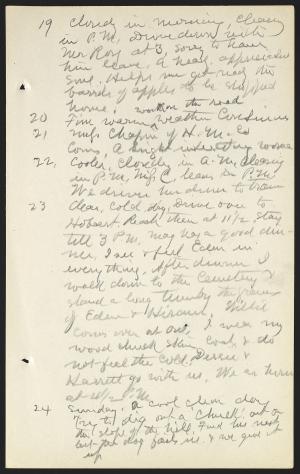 19 Cloudy in morning, clearing
in P.M. Drive down with
Mr Ross at 3, sorry to have
him leave. A ready, appreciative
soul. Helps me get ready the
barrels of apples to be shipped
home, work on the road
20 Fine warm weather continues
21 Miss Chapin of H. M. & Co
comes, A bright interesting woman
22, Cooler, cloudy in A.M. clearing
in P.M. Miss C. leaves in P.M.
We drive her down to train
23 Clear, cold day, Drive over to
Hobart, Reach there at 11 1/2 Stay
till 3 P.M. May has a good din-
ner, I see & feel Eden in
everything. After dinner I
walk down to the Cemetery &
stand a long time by the graves
of Eden & Hiram. Willie
comes over at one, I wear my
wood chuck skin coat, & do
not feel the cold. &
Harriett go with us. We
at P.M.
24 Sunday. A cool clear day
Try to dig out a chuck out on
the slope of the hill. Find his nest
but the dog fails us & we give it
up